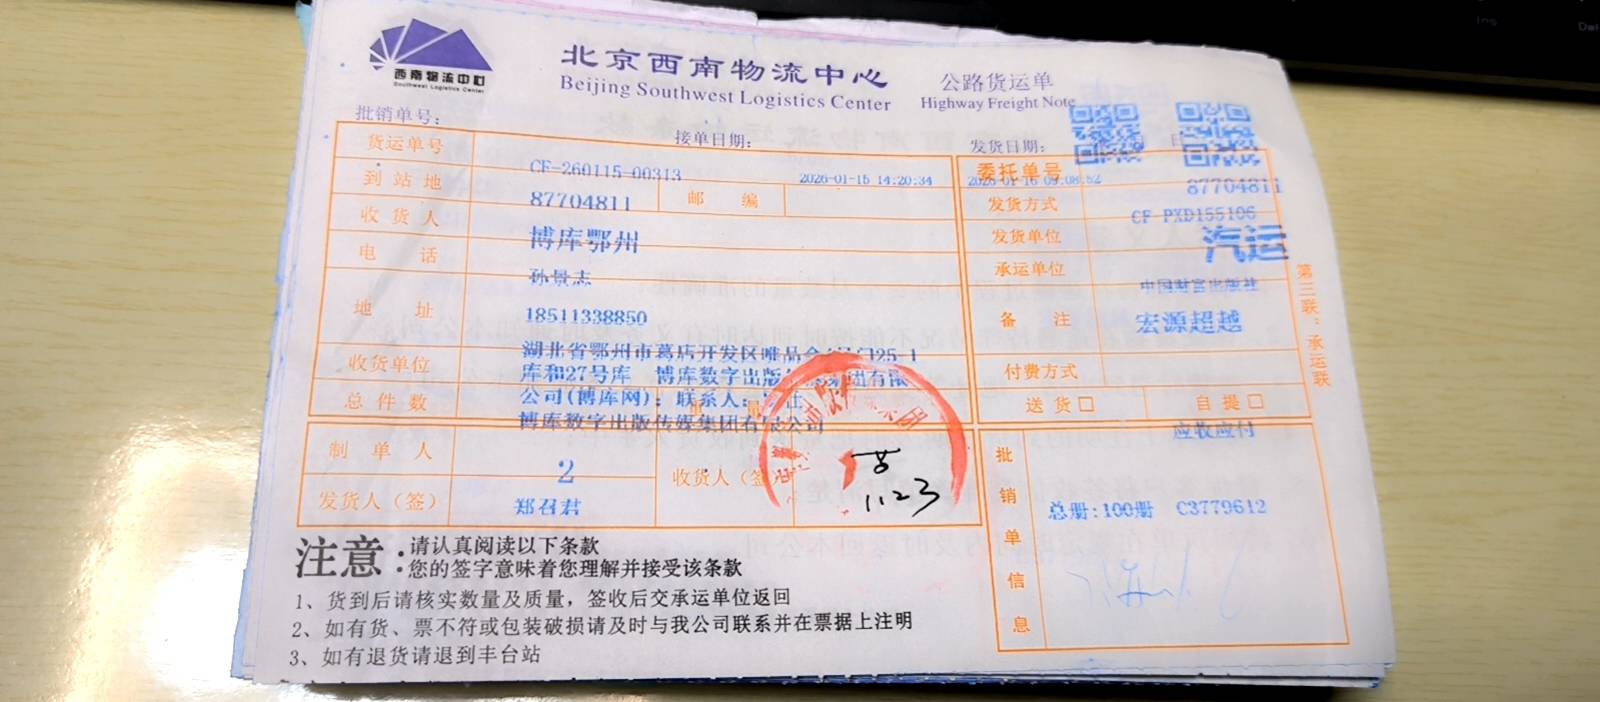 西南物流中心
Southwest Logistics Center
北京西南物流中心
Beijing Southwest Logistics Center
公路货运单
Highway Freight Note
批销单号：
接单日期：
发货日期：
日
货运单号
CF-260115-00313
2026-01-15 14:20:34
2026-01-16 09:08:52
委托单号
87704811
到站地
87704811
邮编
发货方式
CF-PXD155106
收货人
博库鄂州
发货单位
汽运
电话
孙景志
承运单位
中国财富出版社
地址
18511338850
备注
宏源超越
湖北省鄂州市葛店开发区唯品会
25-1
收货单位
库和27号库 博库数字出版
集团有限
付费方式
总件数
公司(博库网)；联系人：
送货□
自提□
博库数字出版传媒集团有限公司
应收应付
制单人
2
收货人（签）
发货人（签）
郑召君
1123
批销单信息
总册:100册 C3779612
第三联：承运联
注意：
请认真阅读以下条款
您的签字意味着您理解并接受该条款
1、货到后请核实数量及质量，签收后交承运单位返回
2、如有货、票不符或包装破损请及时与我公司联系并在票据上注明
3、如有退货请退到丰台站
Ins
Del